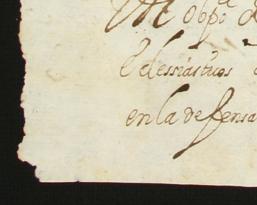 M Obpo
Eclessiasticos
en la defensa